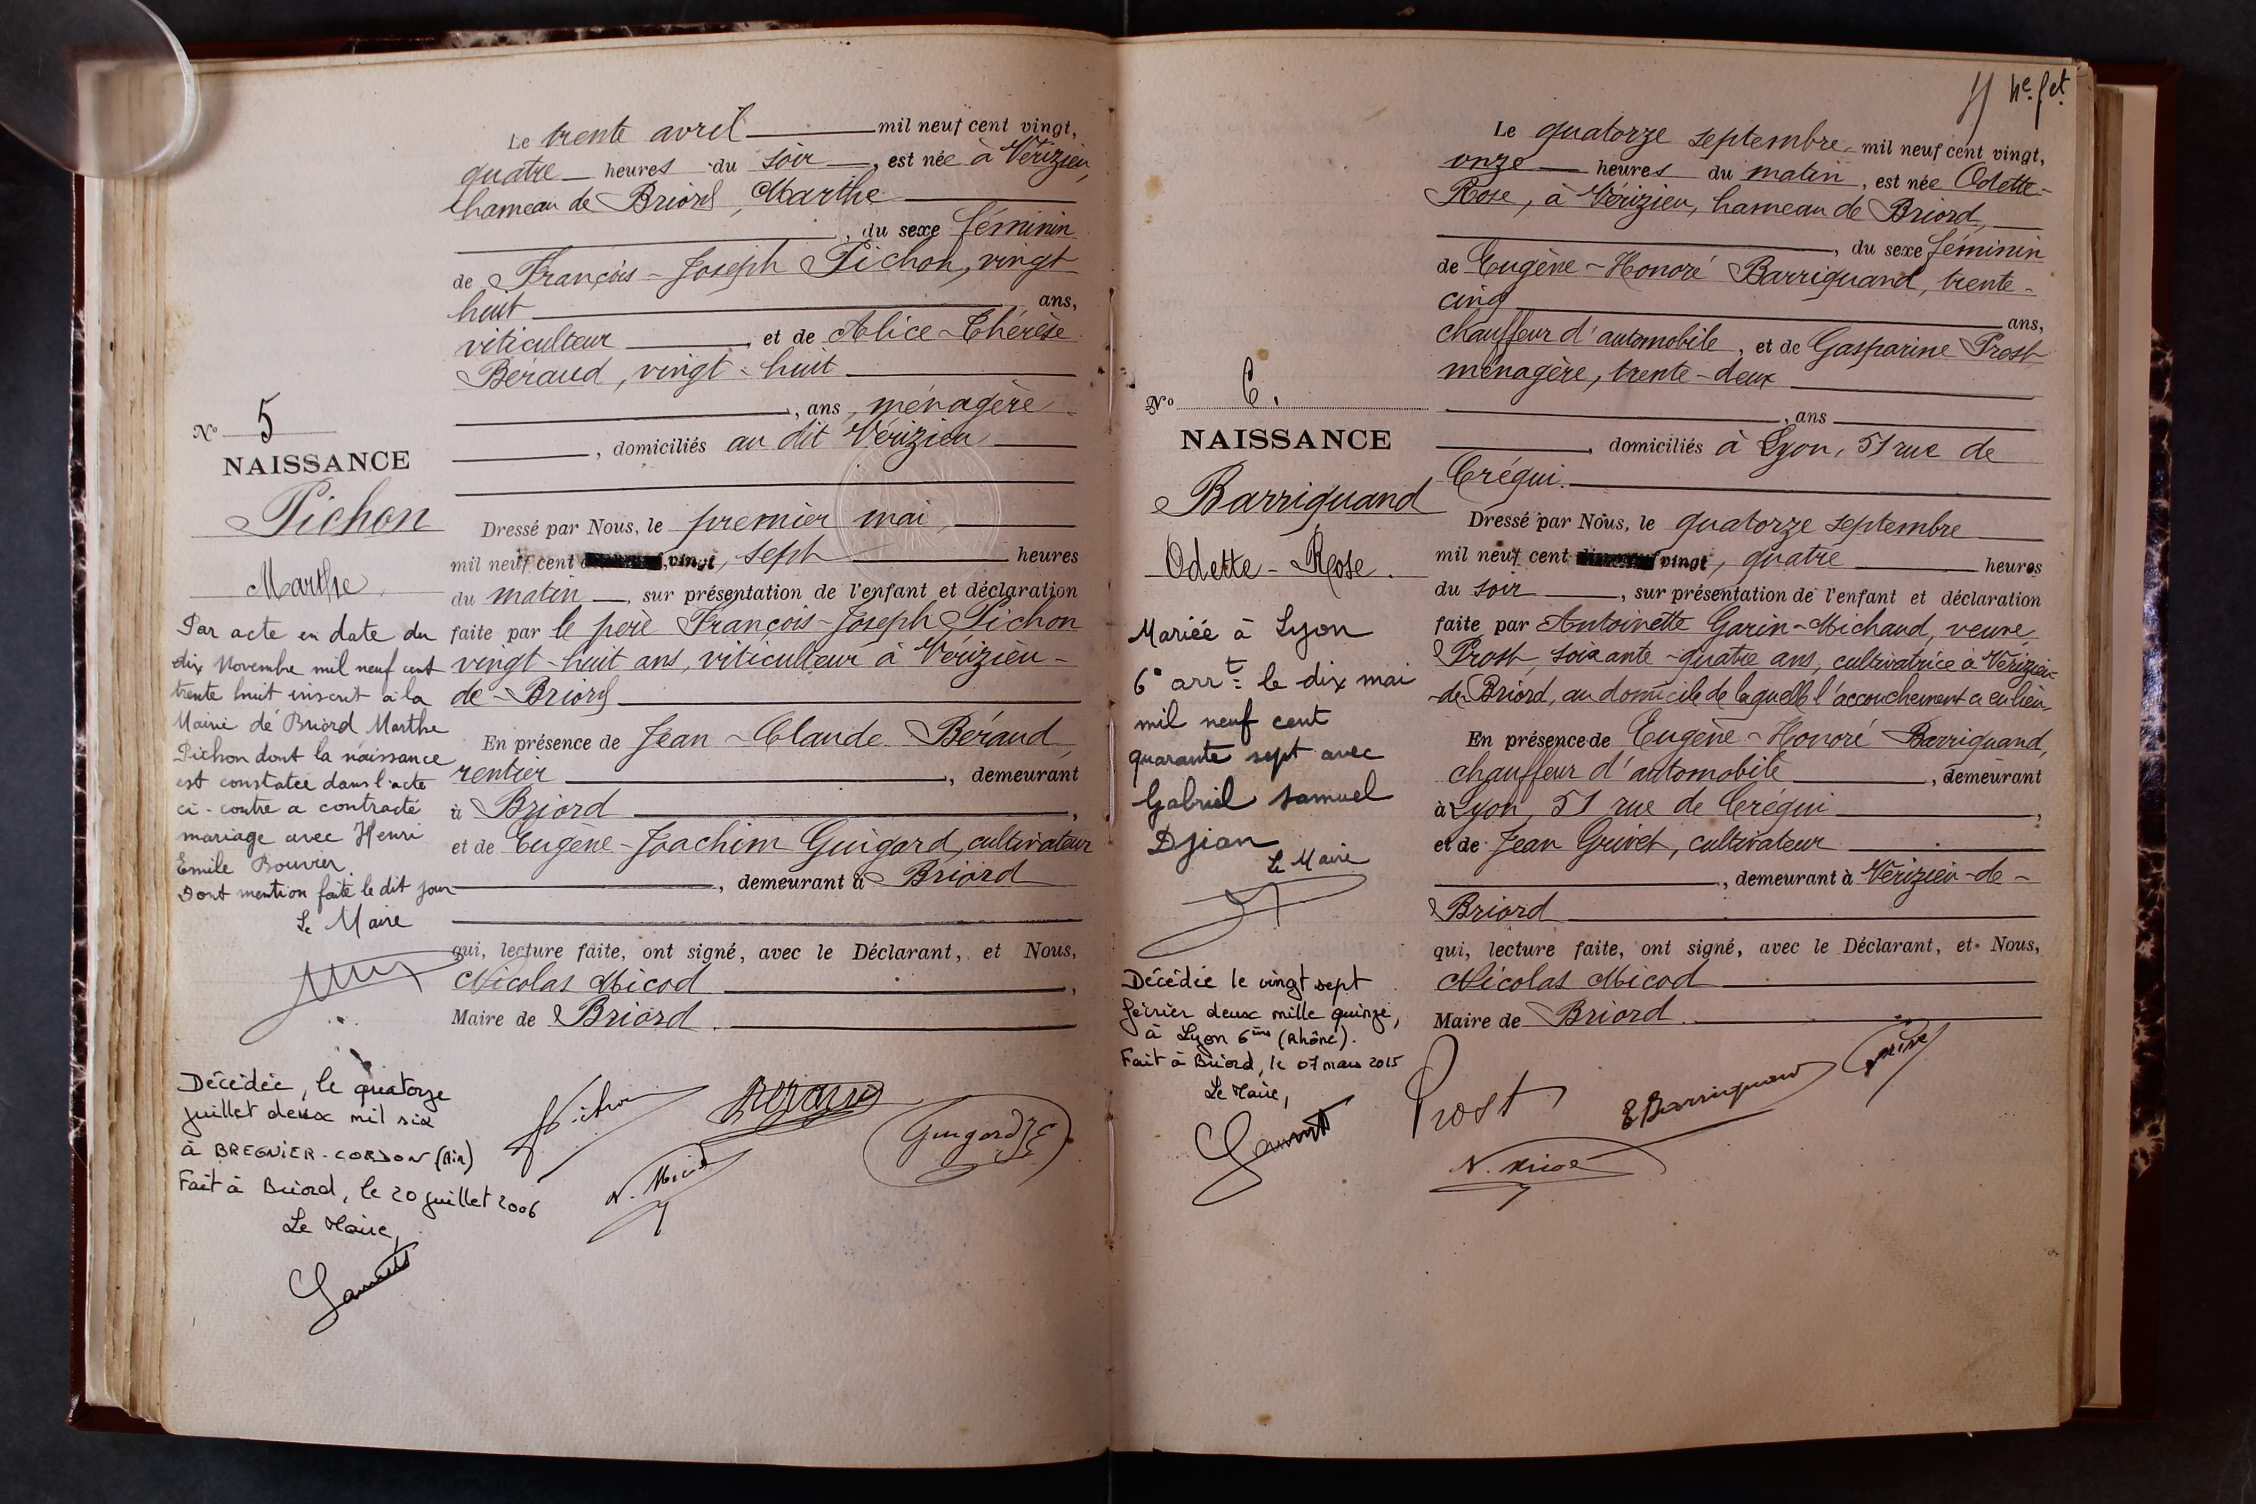 Le trente avril mil neuf cent vingt,
quatre heures du soir, est née à Vérizieu,
hameau de Briord, Marthe
, du sexe féminin
de François-Joseph Pichon, vingt
huit ans,
viticulteur, et de Alice-Thérèse
Béraud, vingt-huit
, ans, ménagère
, domiciliés au dit Vérizieu
Nº 5
NAISSANCE
Pichon
Marthe
Dressé par Nous, le premier mai,
mil neuf cent vingt, sept heures
du matin, sur présentation de l'enfant et déclaration
faite par le père François-Joseph Pichon
vingt-huit ans, viticulteur à Vérizieu-
de-Briord
En présence de Jean-Claude Béraud,
rentier, demeurant
à Briord,
et de Eugène-Joachim Guigard, cultivateur
, demeurant à Briord
qui, lecture faite, ont signé, avec le Déclarant, et Nous,
Nicolas Micod,
Maire de Briord.
Par acte en date du
dix Novembre mil neuf cent
trente huit inscrit à la
Mairie de Briord Marthe
Pichon dont la naissance
est constatée dans l'acte
ci-contre a contracté
mariage avec Henri
Emile Bouvier.
Dont mention faite le dit jour
Le Maire
Décédée, le quatorze
juillet deux mil six
à BREGNIER-CORDON (Ain)
Fait à Briord, le 20 juillet 2006
Le Maire,
Pichon
Béraud
N. Micod
Guigard JE
Le quatorze septembre mil neuf cent vingt,
onze heures du matin, est née Odette-
Rose, à Vérizieu, hameau de Briord,
, du sexe féminin
de Eugène-Honoré Barriquand, trente-
cinq ans,
chauffeur d'automobile, et de Gasparine Prost
ménagère, trente-deux
, ans
, domiciliés à Lyon, 51 rue de
Créqui.
Nº 6.
NAISSANCE
Barriquand
Odette-Rose.
Dressé par Nous, le quatorze septembre
mil neuf cent vingt, quatre heures
du soir, sur présentation de l'enfant et déclaration
faite par Antoinette Garin-Michaud, veuve
Prost, soixante-quatre ans, cultivatrice à Vérizieu-
de-Briord, au domicile de laquelle l'accouchement a eu lieu,
En présence de Eugène-Honoré Barriquand,
chauffeur d'automobile, demeurant
à Lyon, 51 rue de Créqui,
et de Jean Grivet, cultivateur
, demeurant à Vérizieu-de-
Briord
qui, lecture faite, ont signé, avec le Déclarant, et Nous,
Nicolas Micod
Maire de Briord.
Mariée à Lyon
6e arrt le dix mai
mil neuf cent
quarante sept avec
Gabriel Samuel
Djian
Le Maire
Décédée le vingt sept
février deux mille quinze,
à Lyon 6ème (Rhône).
Fait à Briord, le 07 mars 2015
Le Maire,
Prost
E Barriquand
N. Micod